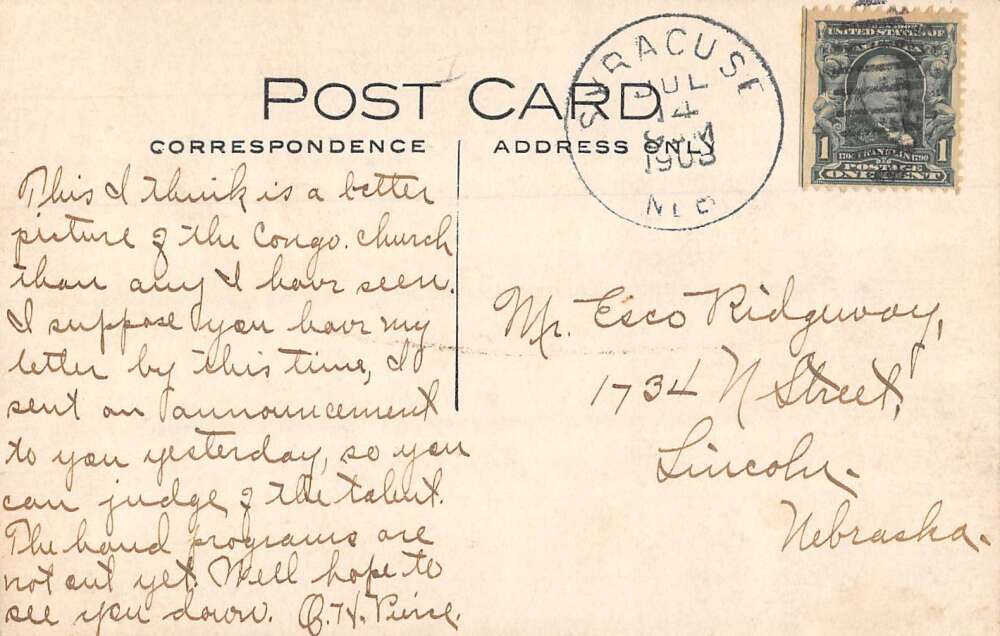 POST CARD
CORRESPONDENCE
ADDRESS ONLY
SYRACUSE
JUL
14
NEB
UNITED STATES OF
AMERICA
1706 FRANKLIN 1790
1 POSTAGE 1
ONE CENT
This I think is a better
picture of the Congo. church
than any I have seen.
I suppose you have my
letter by this time, I
sent an announcement
to you yesterday, so you
can judge of the talent.
The hand programs are
not out yet. Well hope to
see you down.
Mr. Esco Ridgway,
1734 N Street,
Lincoln.
Nebraska.